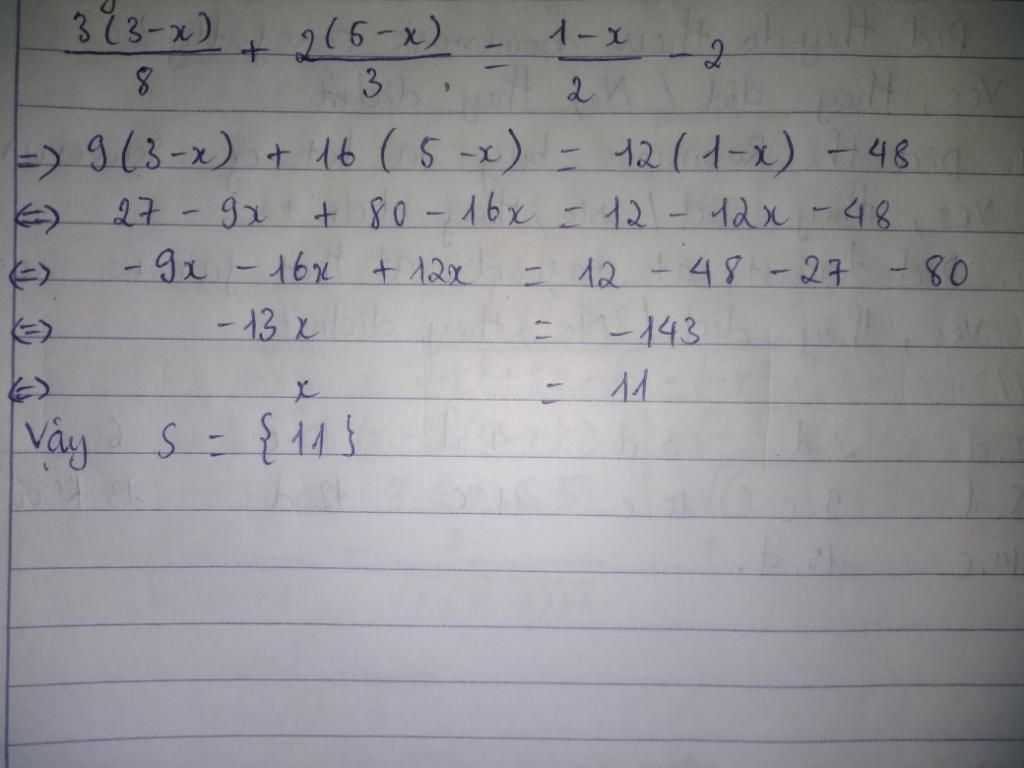 3(3-x)/8 + 2(5-x)/3 = 1-x/2 - 2
=> 9(3-x) + 16(5-x) = 12(1-x) - 48
<=> 27 - 9x + 80 - 16x = 12 - 12x - 48
<=> -9x - 16x + 12x = 12 - 48 - 27 - 80
<=> -13x = -143
<=> x = 11
Vậy S = {11}